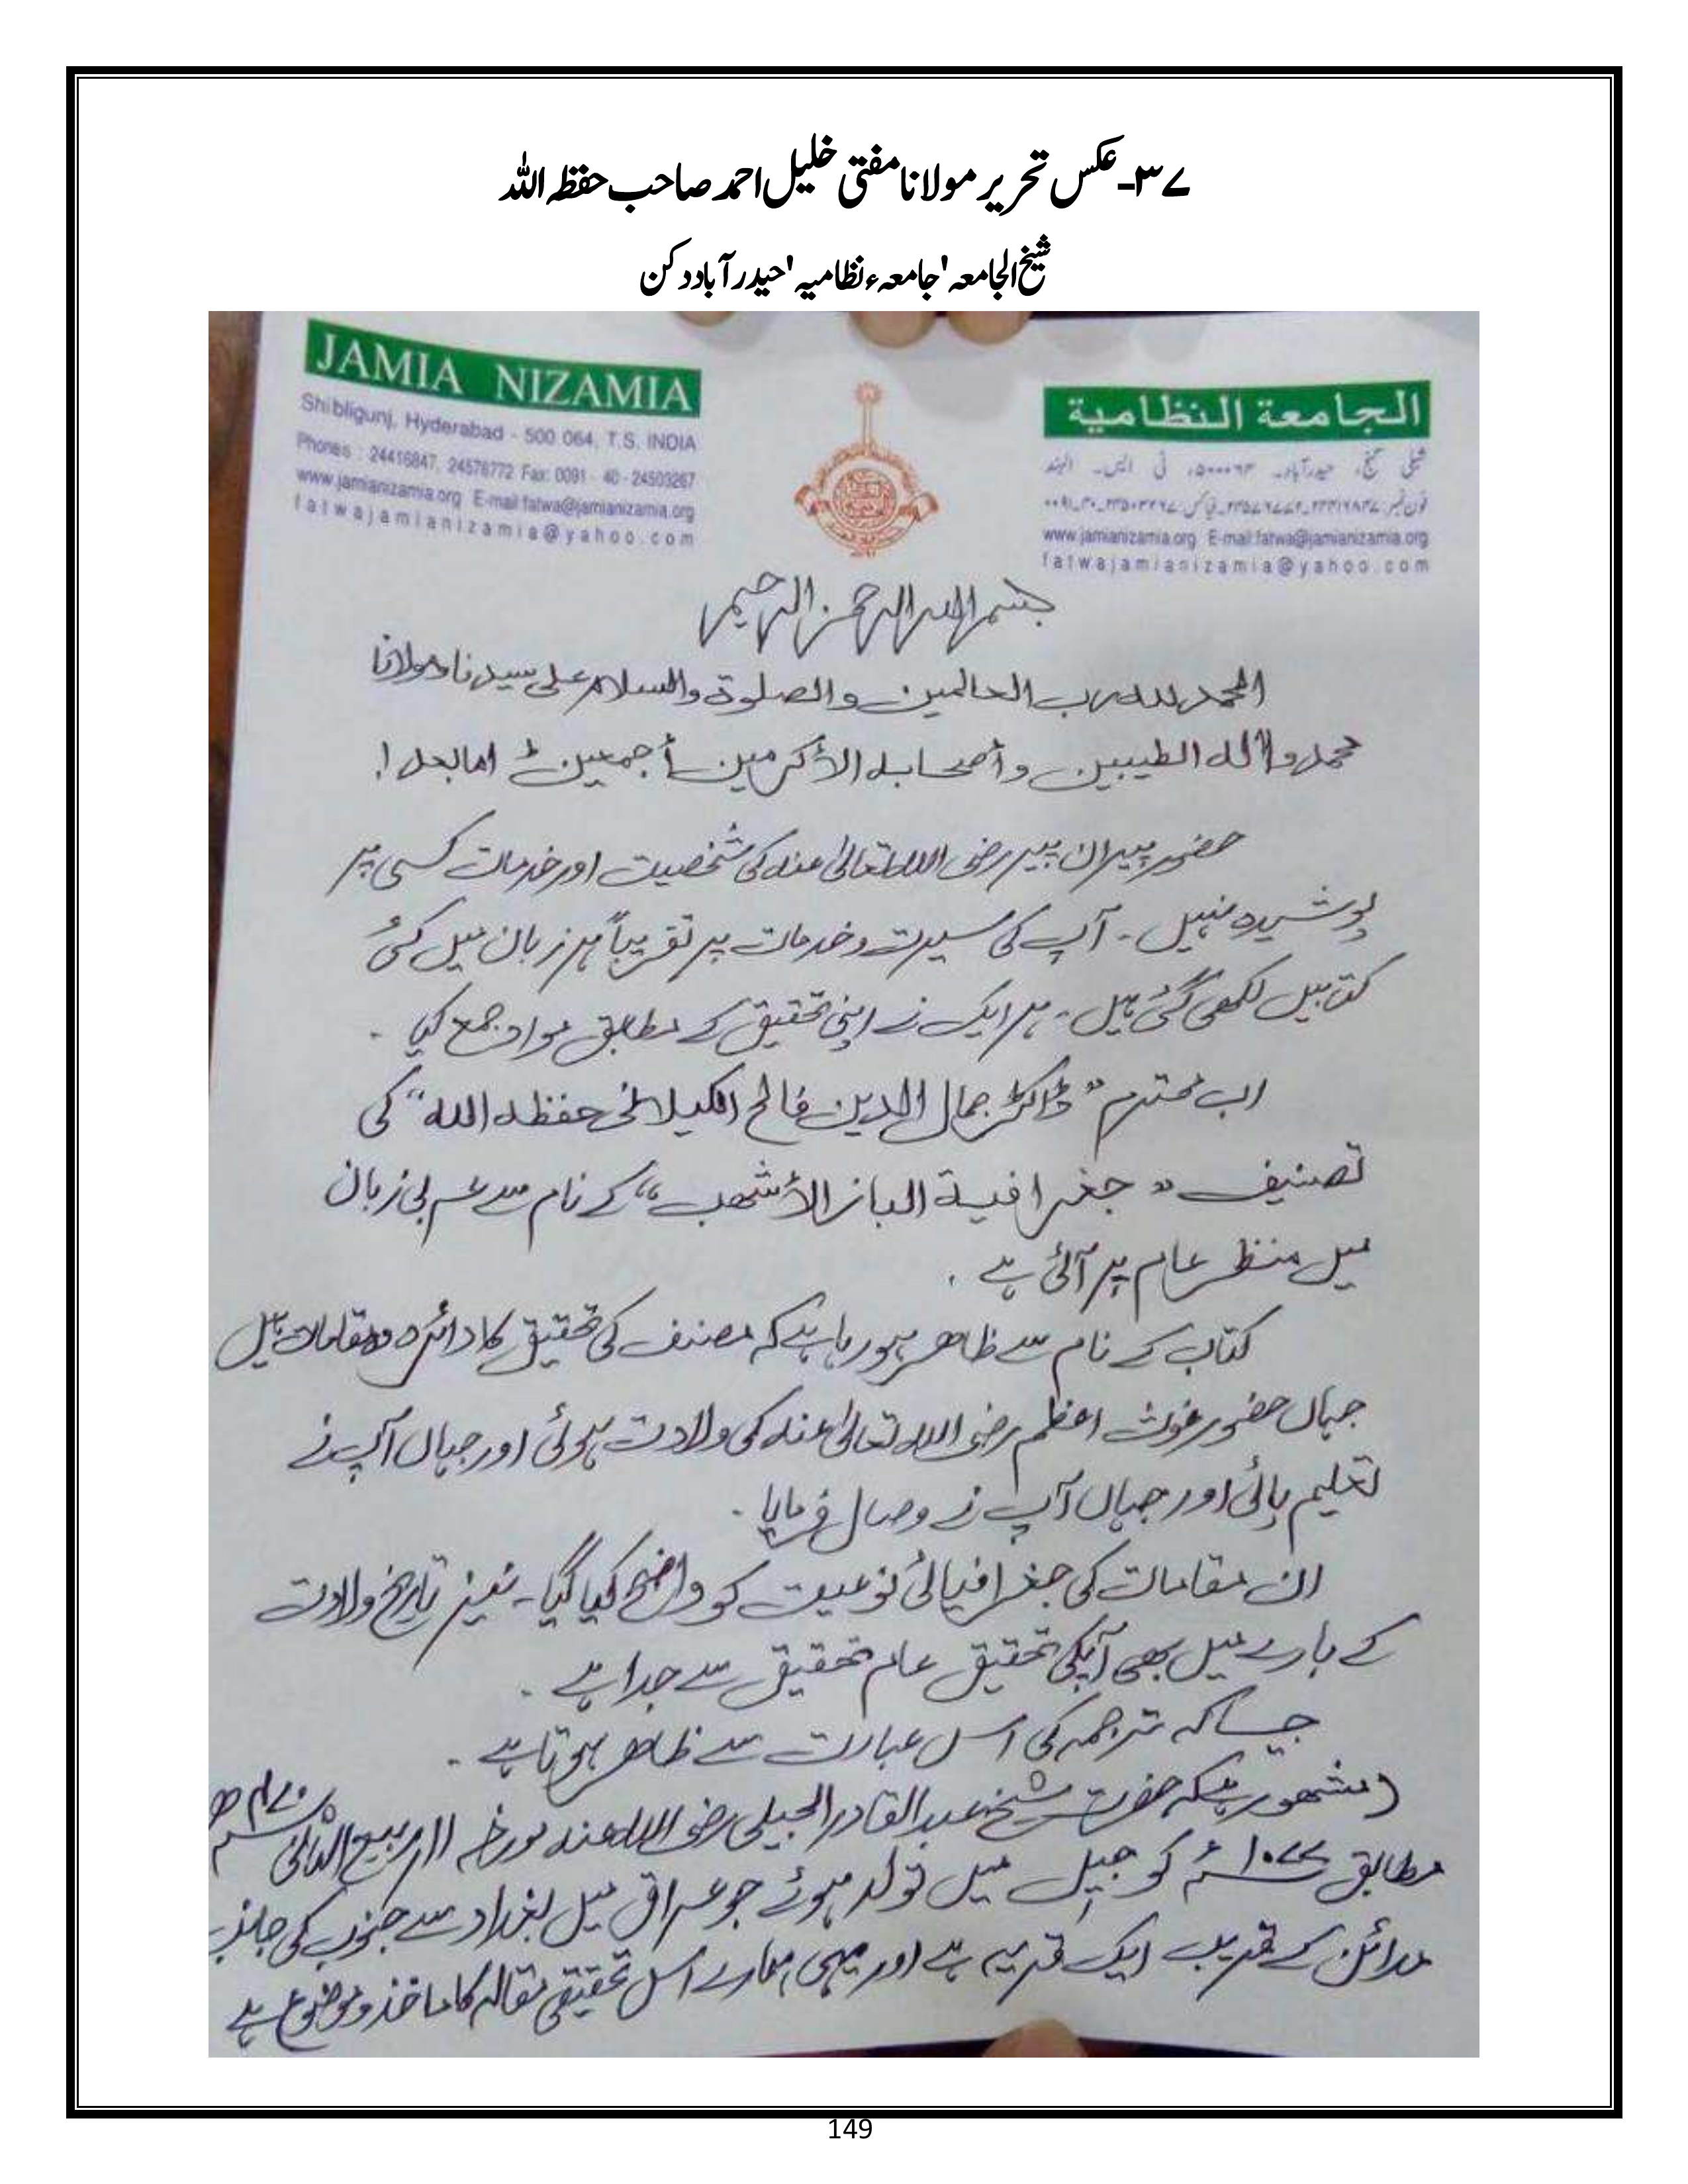 ۳۷۔عکس تحریر مولانا مفتی خلیل احمد صاحب حفظہ اللہ
شیخ الجامعہ 'جامعہء نظامیہ 'حیدرآباد دکن
JAMIA NIZAMIA
Shibligunj, Hyderabad - 500 064, T.S. INDIA
Phones : 24416847, 24576772 Fax: 0091 - 40 - 24503267
www.jamianizamia.org E-mail:fatwa@jamianizamia.org
fatwajamianizamia@yahoo.com
الجامعة النظامية
شبلی گنج، حیدرآباد۔ ۵۰۰۰۶۴، ٹی ایس۔ الہند
فون نمبر: ۲۴۴۱۶۸۴۷۔۲۴۵۷۶۷۷۲۔ فیاکس: ۲۴۵۰۳۲۶۷۔۴۰۔۰۰۹۱
www.jamianizamia.org E-mail:fatwa@jamianizamia.org
fatwajamianizamia@yahoo.com
بسم الله الرحمن الرحيم
الحمد لله رب العالمين والصلوة والسلام على سيدنا ومولانا
محمد وآله الطيبين وأصحابه الأكرمين أجمعين امابعد!
حضور پیران پیر رضی اللہ تعالیٰ عنہ کی شخصیت اور خدمات کسی پر
پوشیدہ نہیں ۔ آپ کی سیرت و خدمات پر تقریباً ہر زبان میں کئی
کتابیں لکھی گئی ہیں ۔ ہر ایک نے اپنی تحقیق کے مطابق مواد جمع کیا ۔
اب محترم " ڈاکٹر جمال الدین فالح الکیلانی حفظہ اللہ " کی
تصنیف " جغرافية الباز الأشهب " کے نام سے عربی زبان
میں منظر عام پر آئی ہے ۔
کتاب کے نام سے ظاہر ہورہا ہے کہ مصنف کی تحقیق کا دائرہ وہ مقامات ہیں
جہاں حضور غوث اعظم رضی اللہ تعالیٰ عنہ کی ولادت ہوئی اور جہاں آپ نے
تعلیم پائی اور جہاں آپ نے وصال فرمایا ۔
ان مقامات کی جغرافیائی نوعیت کو واضح کیا گیا ۔ نیز تاریخ ولادت
کے بارے میں بھی آپکی تحقیق عام تحقیق سے جدا ہے ۔
جیسا کہ ترجمہ کی اس عبارت سے ظاہر ہوتا ہے ۔
(مشہور ہیکہ حضرت شیخ عبدالقادر الجیلی رضی اللہ عنہ مورخہ ۱۱/ ربیع الثانی ۴۷۰ھ
مطابق ۱۰۷۷ء کو جیل میں تولد ہوئے جو عراق میں بغداد سے جنوب کی جانب
مدائن کے قریب ایک قریہ ہے اور یہی ہمارے اس تحقیقی مقالہ کا ماخذ و موضوع ہے
149